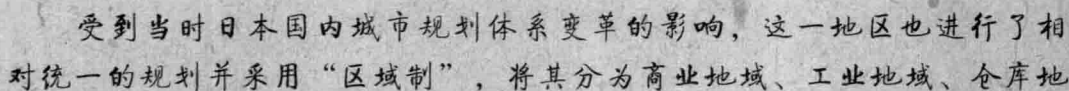 受到当时日本国内城市规划体系变革的影响，这一地区也进行了相
对统一的规划并采用“区域制”，将其分为商业地域、工业地域、仓库地